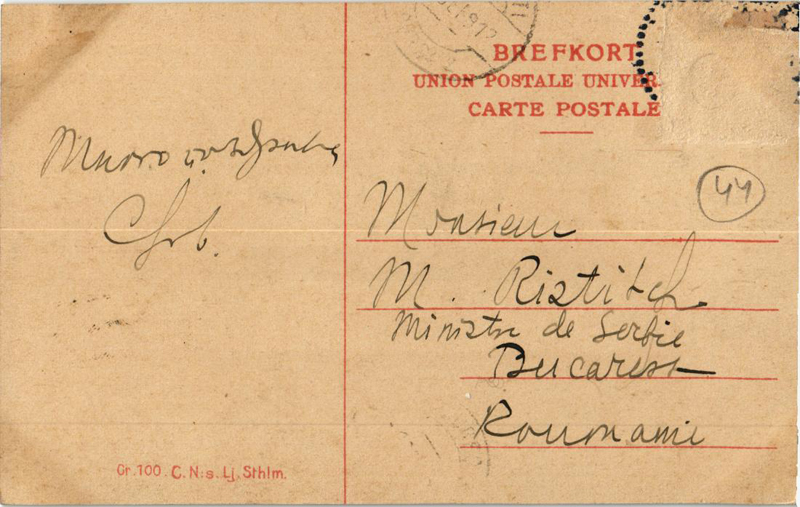 BREFKORT
UNION POSTALE UNIVER
CARTE POSTALE
44
Много
Monsieur
M. Ristitch
Ministre de Serbie
Bucarest
Roumanie
Gr.100. C.N:s. Lj. Sthlm.